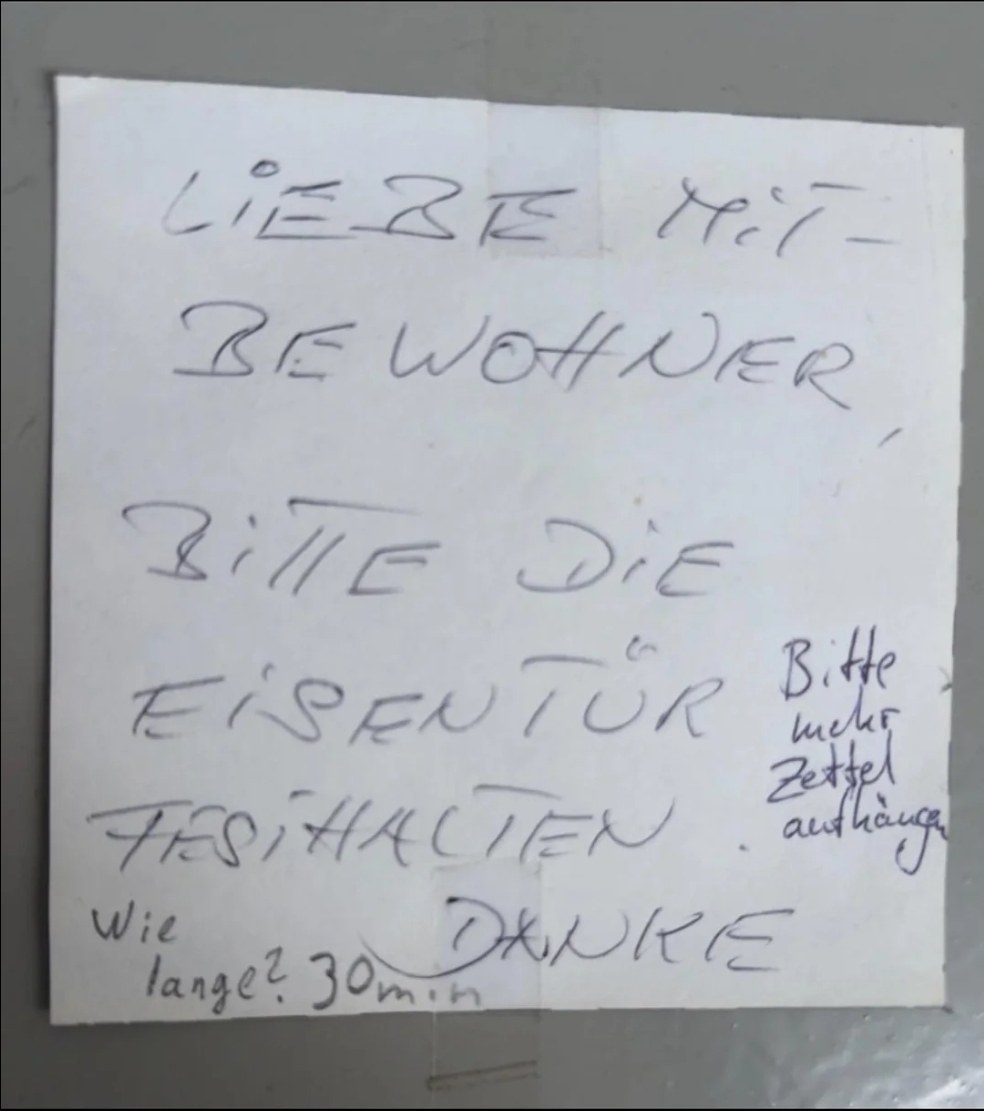 LIEBE MIT-
BEWOHNER,
BITTE DIE
EISENTÜR
FESTHALTEN.
DANKE
Bitte
mehr
Zettel
aufhängen
Wie
lange? 30min